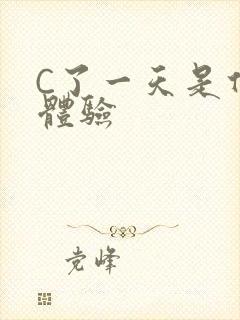 C了一天是
體驗
党峰